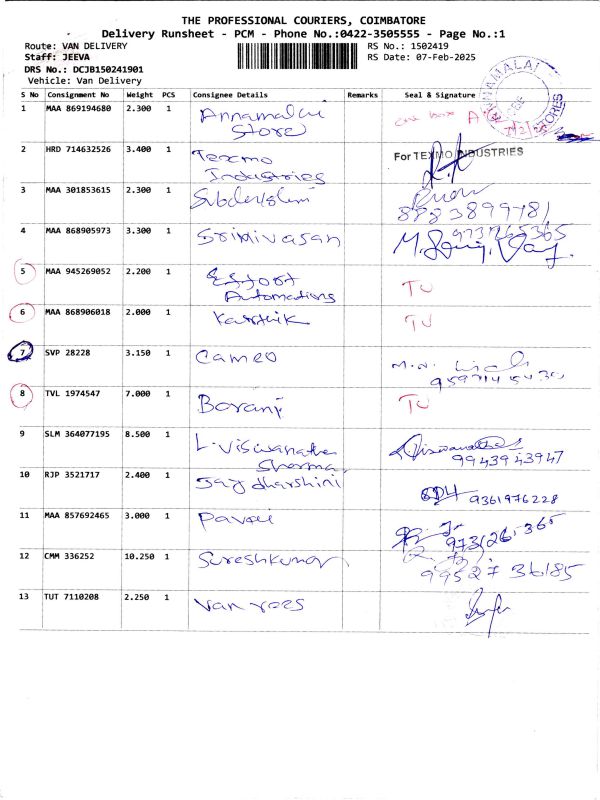 THE PROFESSIONAL COURIERS, COIMBATORE
Delivery Runsheet - PCM - Phone No.:0422-3505555 - Page No.:1
Route: VAN DELIVERY RS No.: 1502419
Staff: JEEVA RS Date: 07-Feb-2025
DRS No.: DCJB150241901
Vehicle: Van Delivery
S No Consignment No Weight PCS Consignee Details Remarks Seal & Signature
1 MAA 869194680 2.300 1 Annamalai
Store
ANNAMALAI
STORES
2 HRD 714632526 3.400 1 Texmo
Industries
For TEXMO INDUSTRIES
3 MAA 301853615 2.300 1
4 MAA 868905973 3.300 1 Srinivasan
5 MAA 945269052 2.200 1
Automations TU
6 MAA 868906018 2.000 1 Karthik TU
7 SVP 28228 3.150 1 Cameo
8 TVL 1974547 7.000 1 TU
9 SLM 364077195 8.500 1 L. Viswanatha
Sharma
9943943947
10 RJP 3521717 2.400 1 Jaydharshini 9361976228
11 MAA 857692465 3.000 1
12 CMM 336252 10.250 1 Sureshkumar
9952736185
13 TUT 7110208 2.250 1